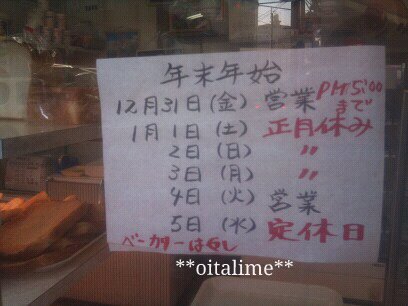 年末年始
12月31日(金) 営業 PM5:00まで
1月1日(土) 正月休み
2日(日) 〃
3日(月) 〃
4日(火) 営業
5日(水) 定休日
ベーカリーはなし
**oitalime**